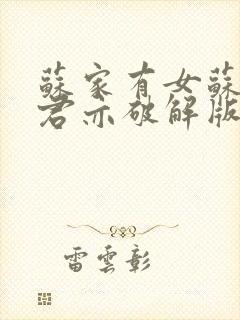 蘇家有女蘇
君亦破解版
雷雲彰